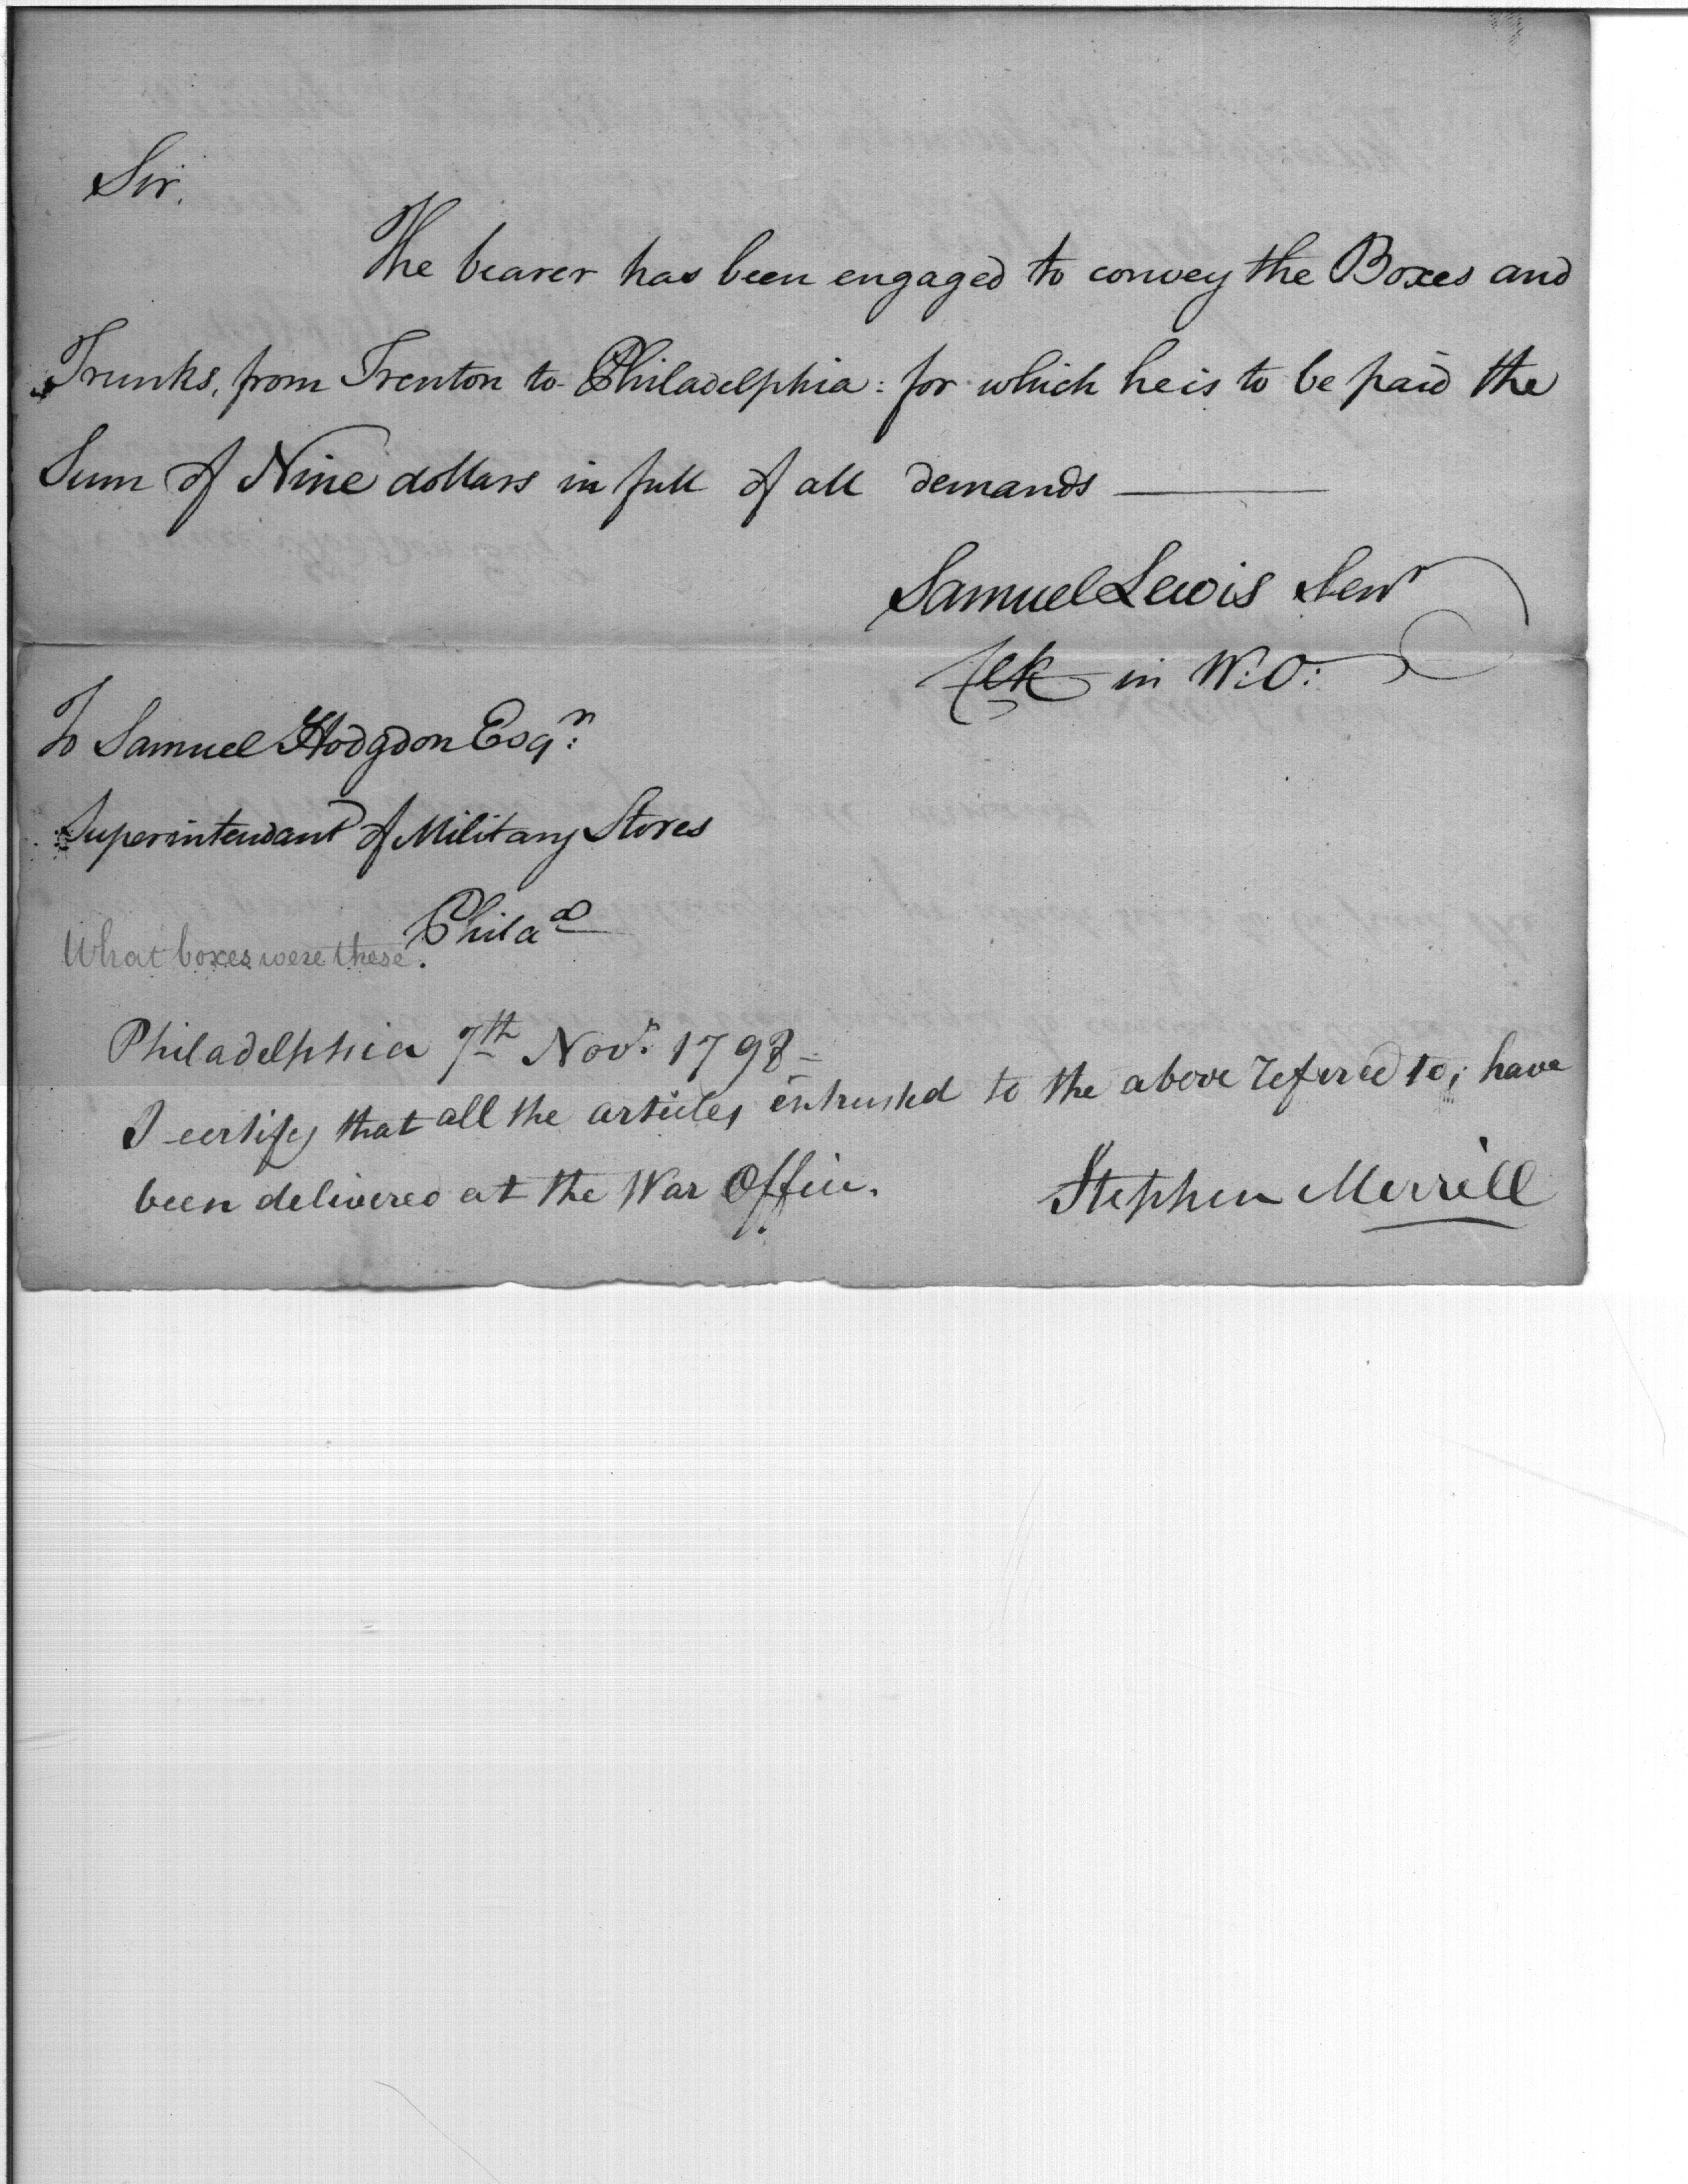 Sir.
The bearer has been engaged to convey the Boxes and
Trunks, from Trenton to Philadelphia: for which he is to be paid the
Sum of Nine dollars in full of all demands ———
Samuel Lewis Senr
Clk in W:O:
To Samuel Hodgdon Esqr:
Superintendant of Military Stores
Philaa
What boxes were these.
Philadelphia 7th Novr. 1798 -
I certify that all the articles entrusted to the above refered to, have
been delivered at the War Office.
Stephen Merrill